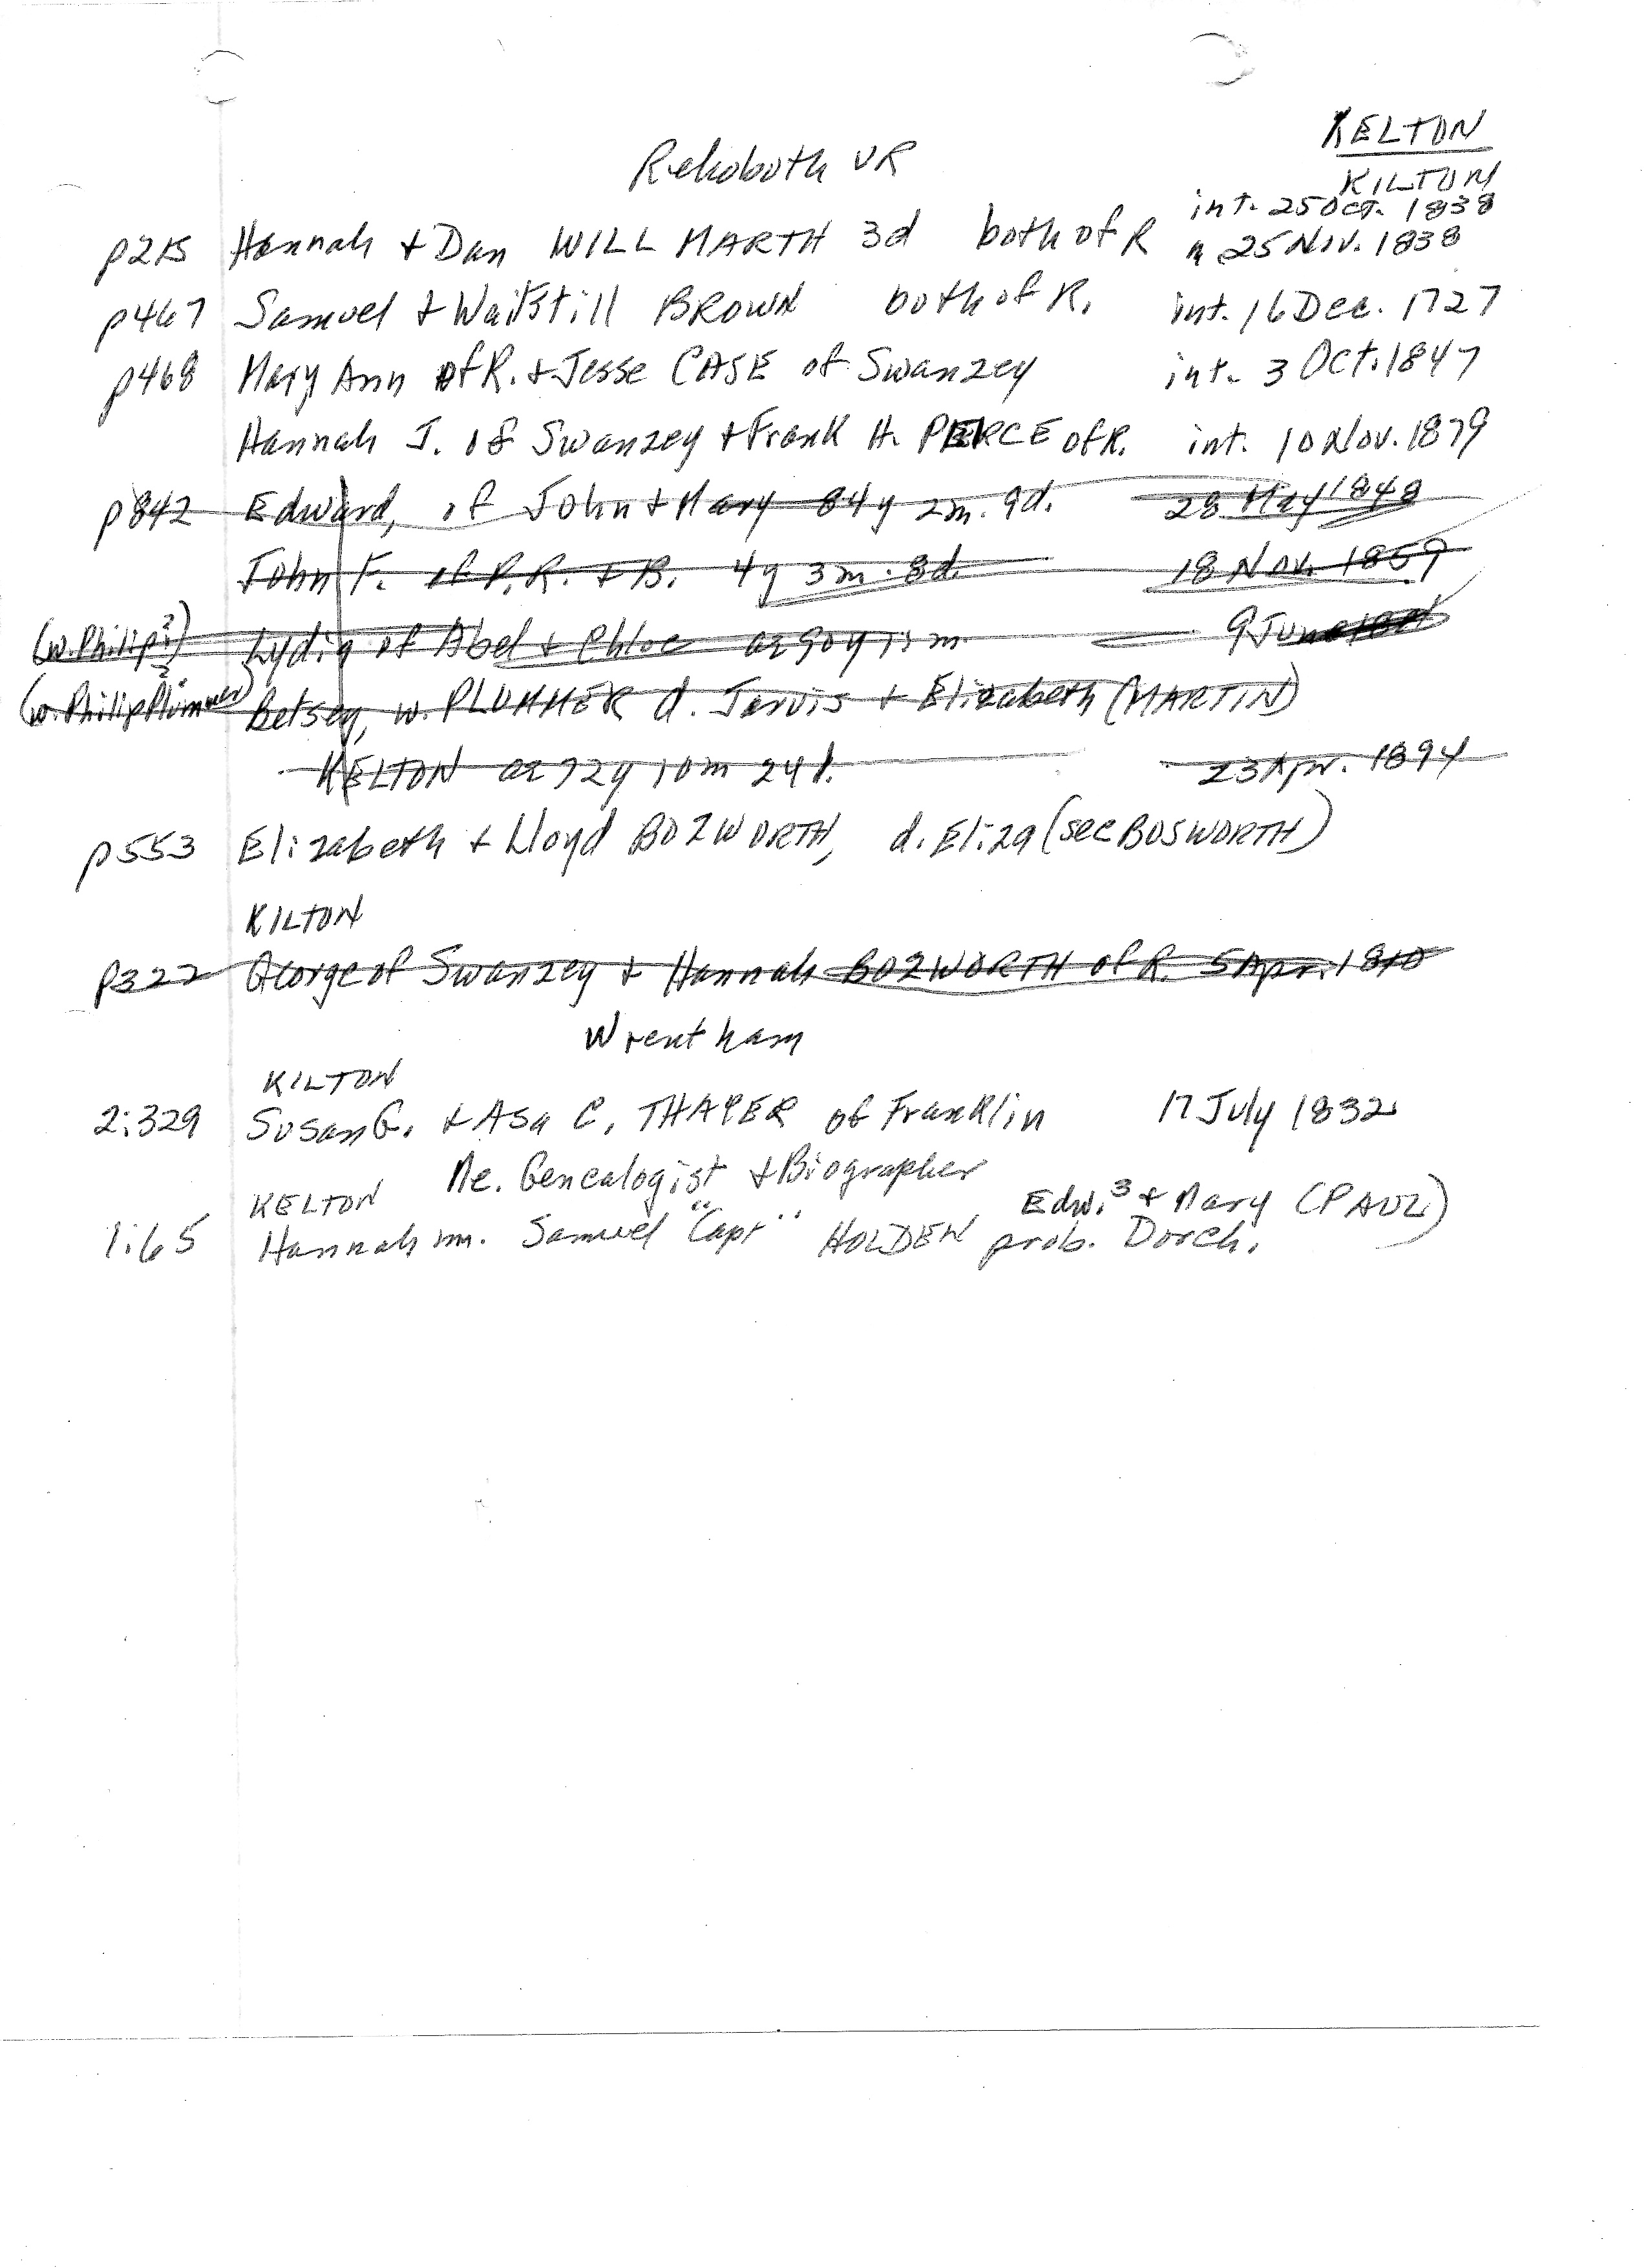 KELTON
Rehoboth VR
KILTON
int. 25 Oct. 1838
p215 Hannah + Dan WILLMARTH 3d both of R m 25 Nov. 1838
p467 Samuel + Waitstill BROWN both of R. int. 16 Dec. 1727
p468 Mary Ann of R. + Jesse CASE of Swanzey int. 3 Oct. 1847
Hannah J. of Swanzey + Frank H. PEIRCE of R. int. 10 Nov. 1879
p842 Edward, of John + Mary 84y 2m. 9d. 28 May 1848
John F. of P.R. + B. 4y 3m. 8d. 18 Nov. 1859
(w. Philip?) Lydia of Abel + Chloe ae 90y 11m. 9 June
(w. Philip Plummer?) Betsey, w. PLUMMER d. Jarvis + Elizabeth (MARTIN)
KELTON ae 72y 10m 24d. 23 Apr. 1894
p553 Elizabeth + Lloyd BOZWORTH, d. Eliza (see BOSWORTH)
KILTON
p322 George of Swanzey + Hannah BOZWORTH of R. 5 Apr. 1810
Wrentham
KILTON
2:329 Susan G. + Asa C. THAYER of Franklin 17 July 1832
Me. Genealogist + Biographer
KELTON Edw.³ + Mary (PAUL)
1:65 Hannah m. Samuel "Capt" HOLDEN prob. Dorch.